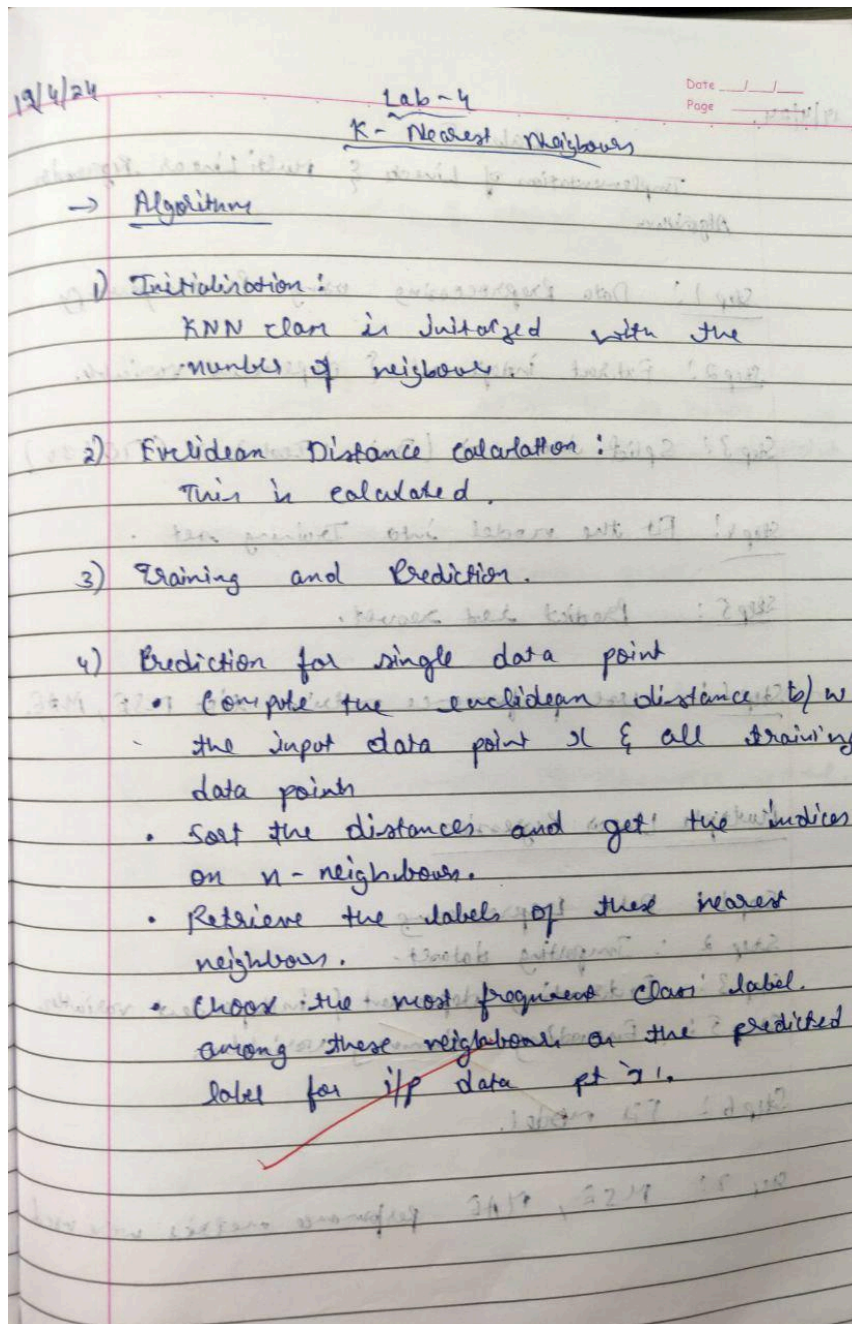 19/4/24
Date __/__/__
Page
Lab-4
K-Nearest Neigbours
→ Algorithm
1) Initialination :
KNN class is initalzed with the
number of neigbours.
2) Euclidean Distance Calculation :
This is calculated.
3) Training and Prediction.
4) Prediction for single data point
• Compute the euclidean distance b/w
the input data point x & all training
data points
• Sort the distances and get the indices
on n-neighbours.
• Retrieve the labels of these nearest
neighbours.
• Choose the most frequent class label.
among these neighbours as the predicted
label for i/p data pt 'x'.